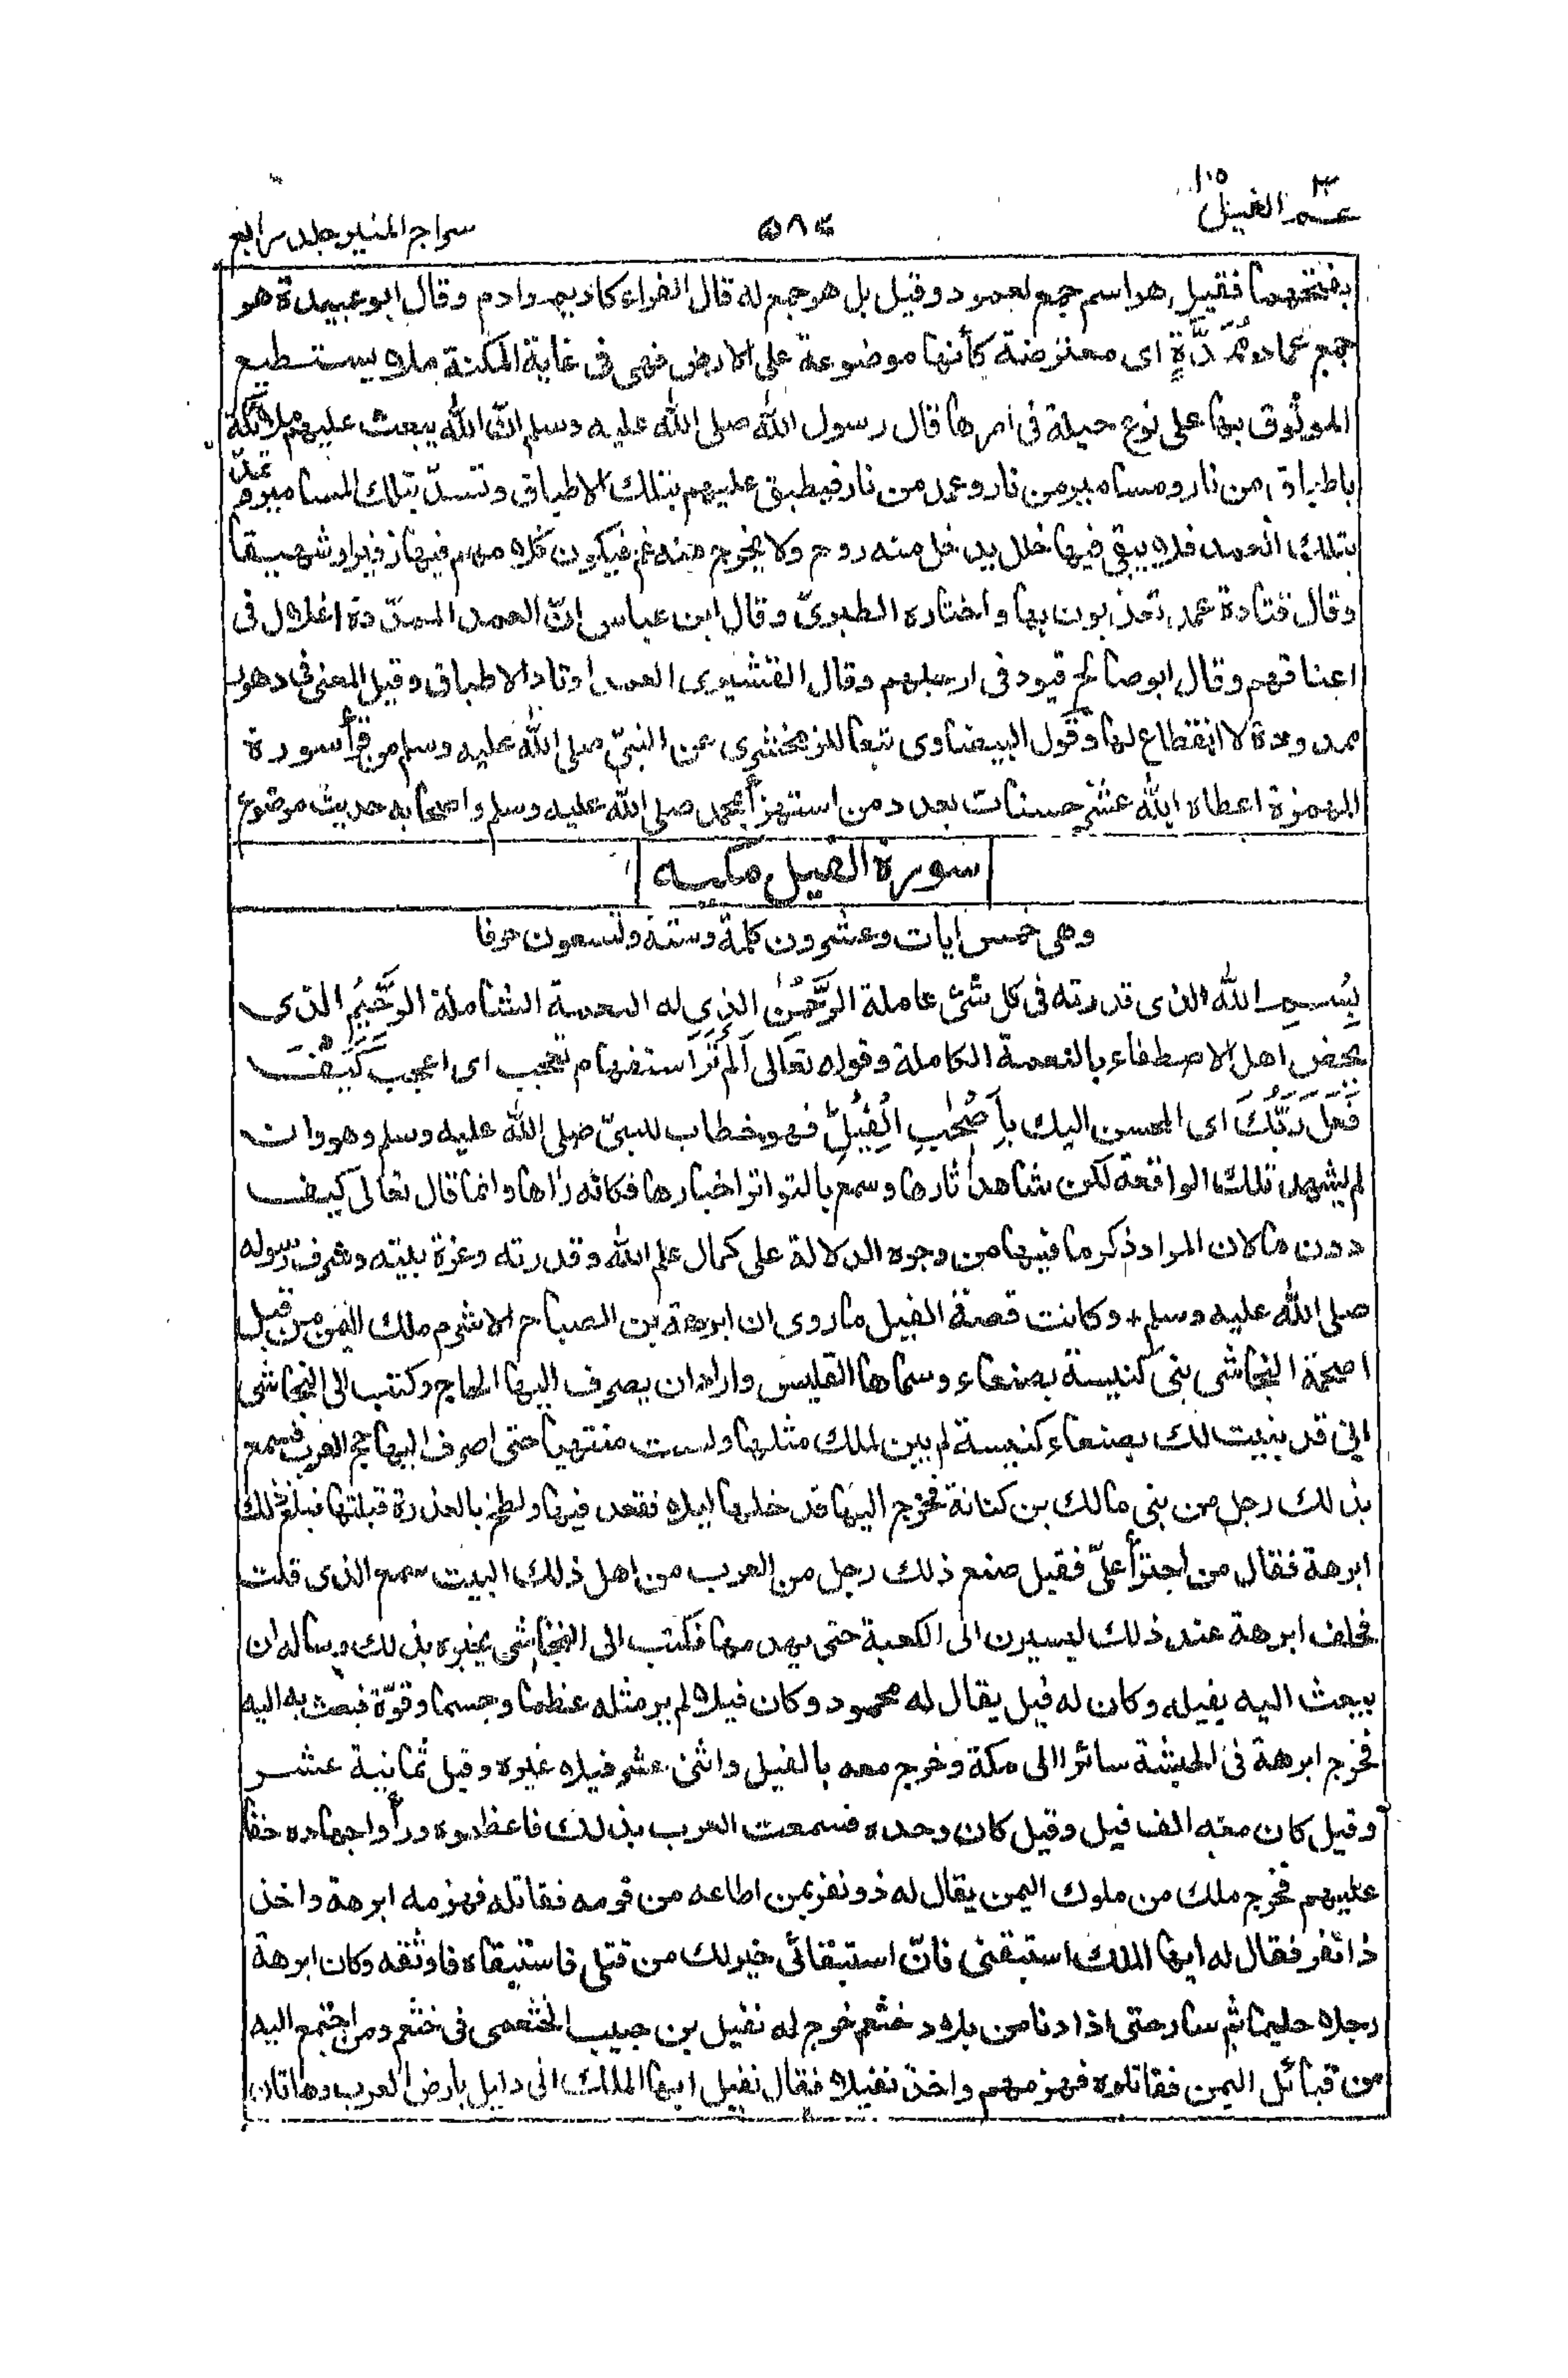 عم الفيل ١٠٥
٥٨٤
سراج المنير جلد رابع
بفتحهما فقيل هو اسم جمع لعمود وقيل بل هو جمع له قال الفراء كاديم وادم وقال ابو عبيدة هو
جمع عماد مُّمَدَّدَةٍ اى معترضة كأنها موضوعة على الارض فهى فى غاية المكنة فلا يستطيع
الموثوق بها على نوع حيلة فى امرها قال رسول الله صلى الله عليه وسلم انّ الله يبعث عليهم ملائكة
باطباق من نار ومسامير من نار وعمد من نار فيطبق عليهم بتلك الاطباق وتسدّ بتلك المسامير وتمدّ
بتلك العمد فلا يبقى فيها خلل يدخل منه روح ولا يخرج منه غم فيكون كلامهم فيها زفيرا وشهيقا
وقال قتادة عمد يعذبون بها واختاره الطبرىّ وقال ابن عباس انّ العمد الممدّدة اغلال فى
اعناقهم وقال ابو صالح قيود فى ارجلهم وقال القشيرى العمد اوتاد الاطباق وقيل المعنى فى دهور
ممدودة لا انقطاع لها وقول البيضاوى تبعا للزمخشرى عن النبىّ صلى الله عليه وسلم من قرأ سورة
الهمزة اعطاه الله عشر حسنات بعدد من استهزأ بمحمد صلى الله عليه وسلم واصحابه حديث موضوع
سورة الفيل مكيه
وهى خمس ايات وعشرون كلمة وستة وتسعون حرفا
بِسْمِ الله الذى قدرته فى كل شئ عاملة الرَّحْمٰنِ الذى له النعمة الشاملة الرَّحِيْمِ الذى
يخص اهل الاصطفاء بالنعمة الكاملة وقوله تعالى اَلَمْ تَرَ استفهام تعجب اى اعجب كَيْفَ
فَعَلَ رَبُّكَ اى المحسن اليك بِاَصْحٰبِ الْفِيْلِ فهو خطاب للنبىّ صلى الله عليه وسلم وهو وان
لم يشهد تلك الواقعة لكن شاهد اٰثارها وسمع بالتواتر اخبارها فكانّه راٰها وانما قال تعالى كيف
دون ما لان المراد ذكر ما فيها من وجوه الدلالة على كمال علم الله وقدرته وعزة بيته وشرف رسوله
صلى الله عليه وسلم + وكانت قصة الفيل ما روى ان ابرهة بن الصباح الاشرم ملك اليمن من قبل
اصحمة النجاشى بنى كنيسة بصنعاء وسماها القليس واراد ان يصرف اليها الحاج وكتب الى النجاشى
انى قد بنيت لك بصنعاء كنيسة لم يبن لملك مثلها ولست منتهيا حتى اصرف اليها حج العرب فسمع
بذلك رجل من بنى مالك بن كنانة فخرج اليها فدخلها ليلا فقعد فيها ولطخ بالعذرة قبلتها فبلغ ذلك
ابرهة فقال من اجترأ علىّ فقيل صنع ذلك رجل من العرب من اهل ذلك البيت سمع الذى قلت
فحلف ابرهة عند ذلك ليسيرن الى الكعبة حتى يهدمها فكتب الى النجاشى يخبره بذلك ويساله ان
يبعث اليه بفيله وكان له فيل يقال له محمود وكان فيلا لم ير مثله عظما وجسما وقوّة فبعث به اليه
فخرج ابرهة فى الحبشة سائرا الى مكة وخرج معه بالفيل واثنى عشر فيلا غيره وقيل ثمانية عشر
وقيل كان معه الف فيل وقيل كان وحده فسمعت العرب بذلك فاعظموه ورأوا جهاده حقا
عليهم فخرج ملك من ملوك اليمن يقال له ذو نفر بمن اطاعه من قومه فقاتله فهزمه ابرهة واخذ
ذا نفر فقال له ايها الملك استبقنى فانّ استبقائى خير لك من قتلى فاستبقاه فاوثقه وكان ابرهة
رجلا حليما ثم سار حتى اذا دنا من بلاد خثعم خرج له نفيل بن حبيب الخثعمى فى خثعم ومن اجتمع اليه
من قبائل اليمن فقاتلوه فهزمهم واخذ نفيلا فقال نفيل ايها الملك انى دليل بارض العرب وهاتان